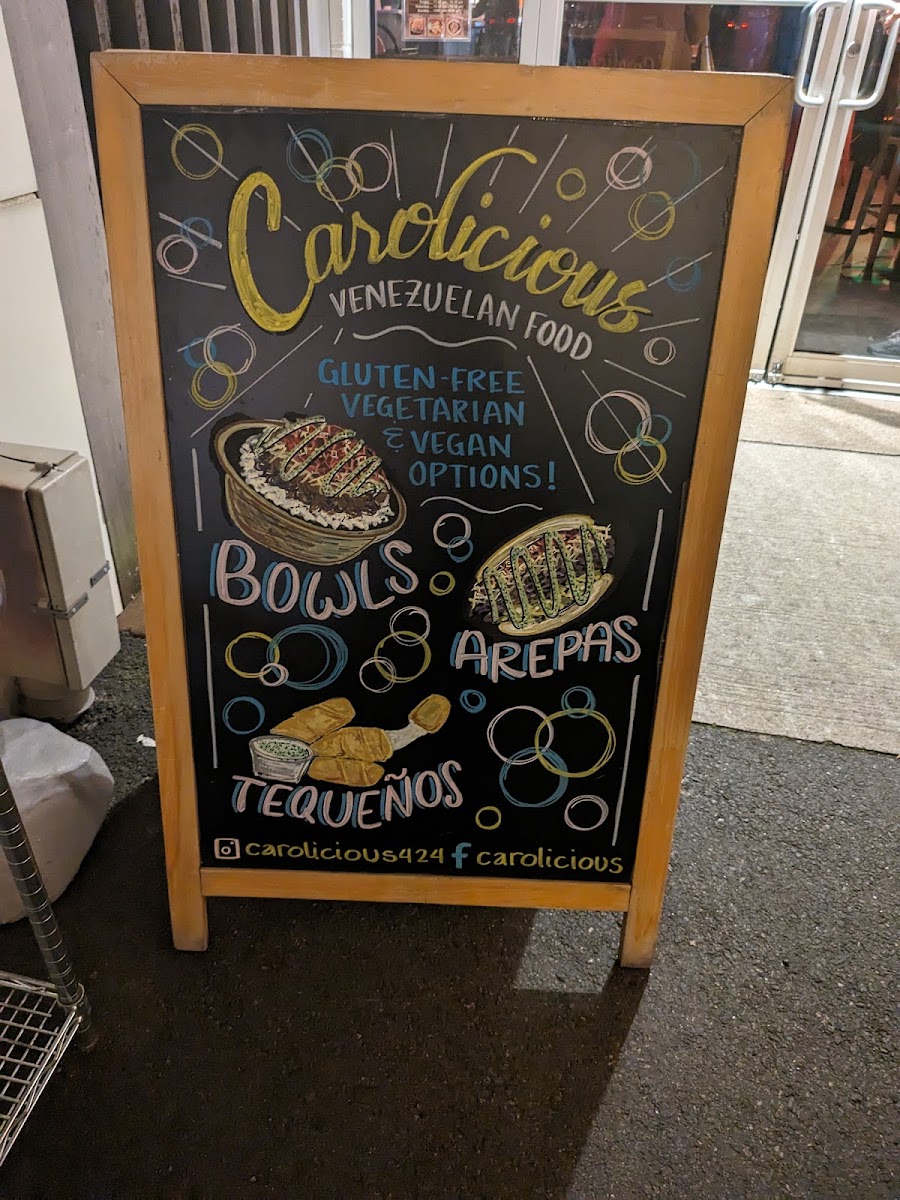 Carolicious
VENEZUELAN FOOD
GLUTEN-FREE
VEGETARIAN
& VEGAN
OPTIONS!
BOWLS
AREPAS
TEQUEÑOS
carolicious424 f carolicious